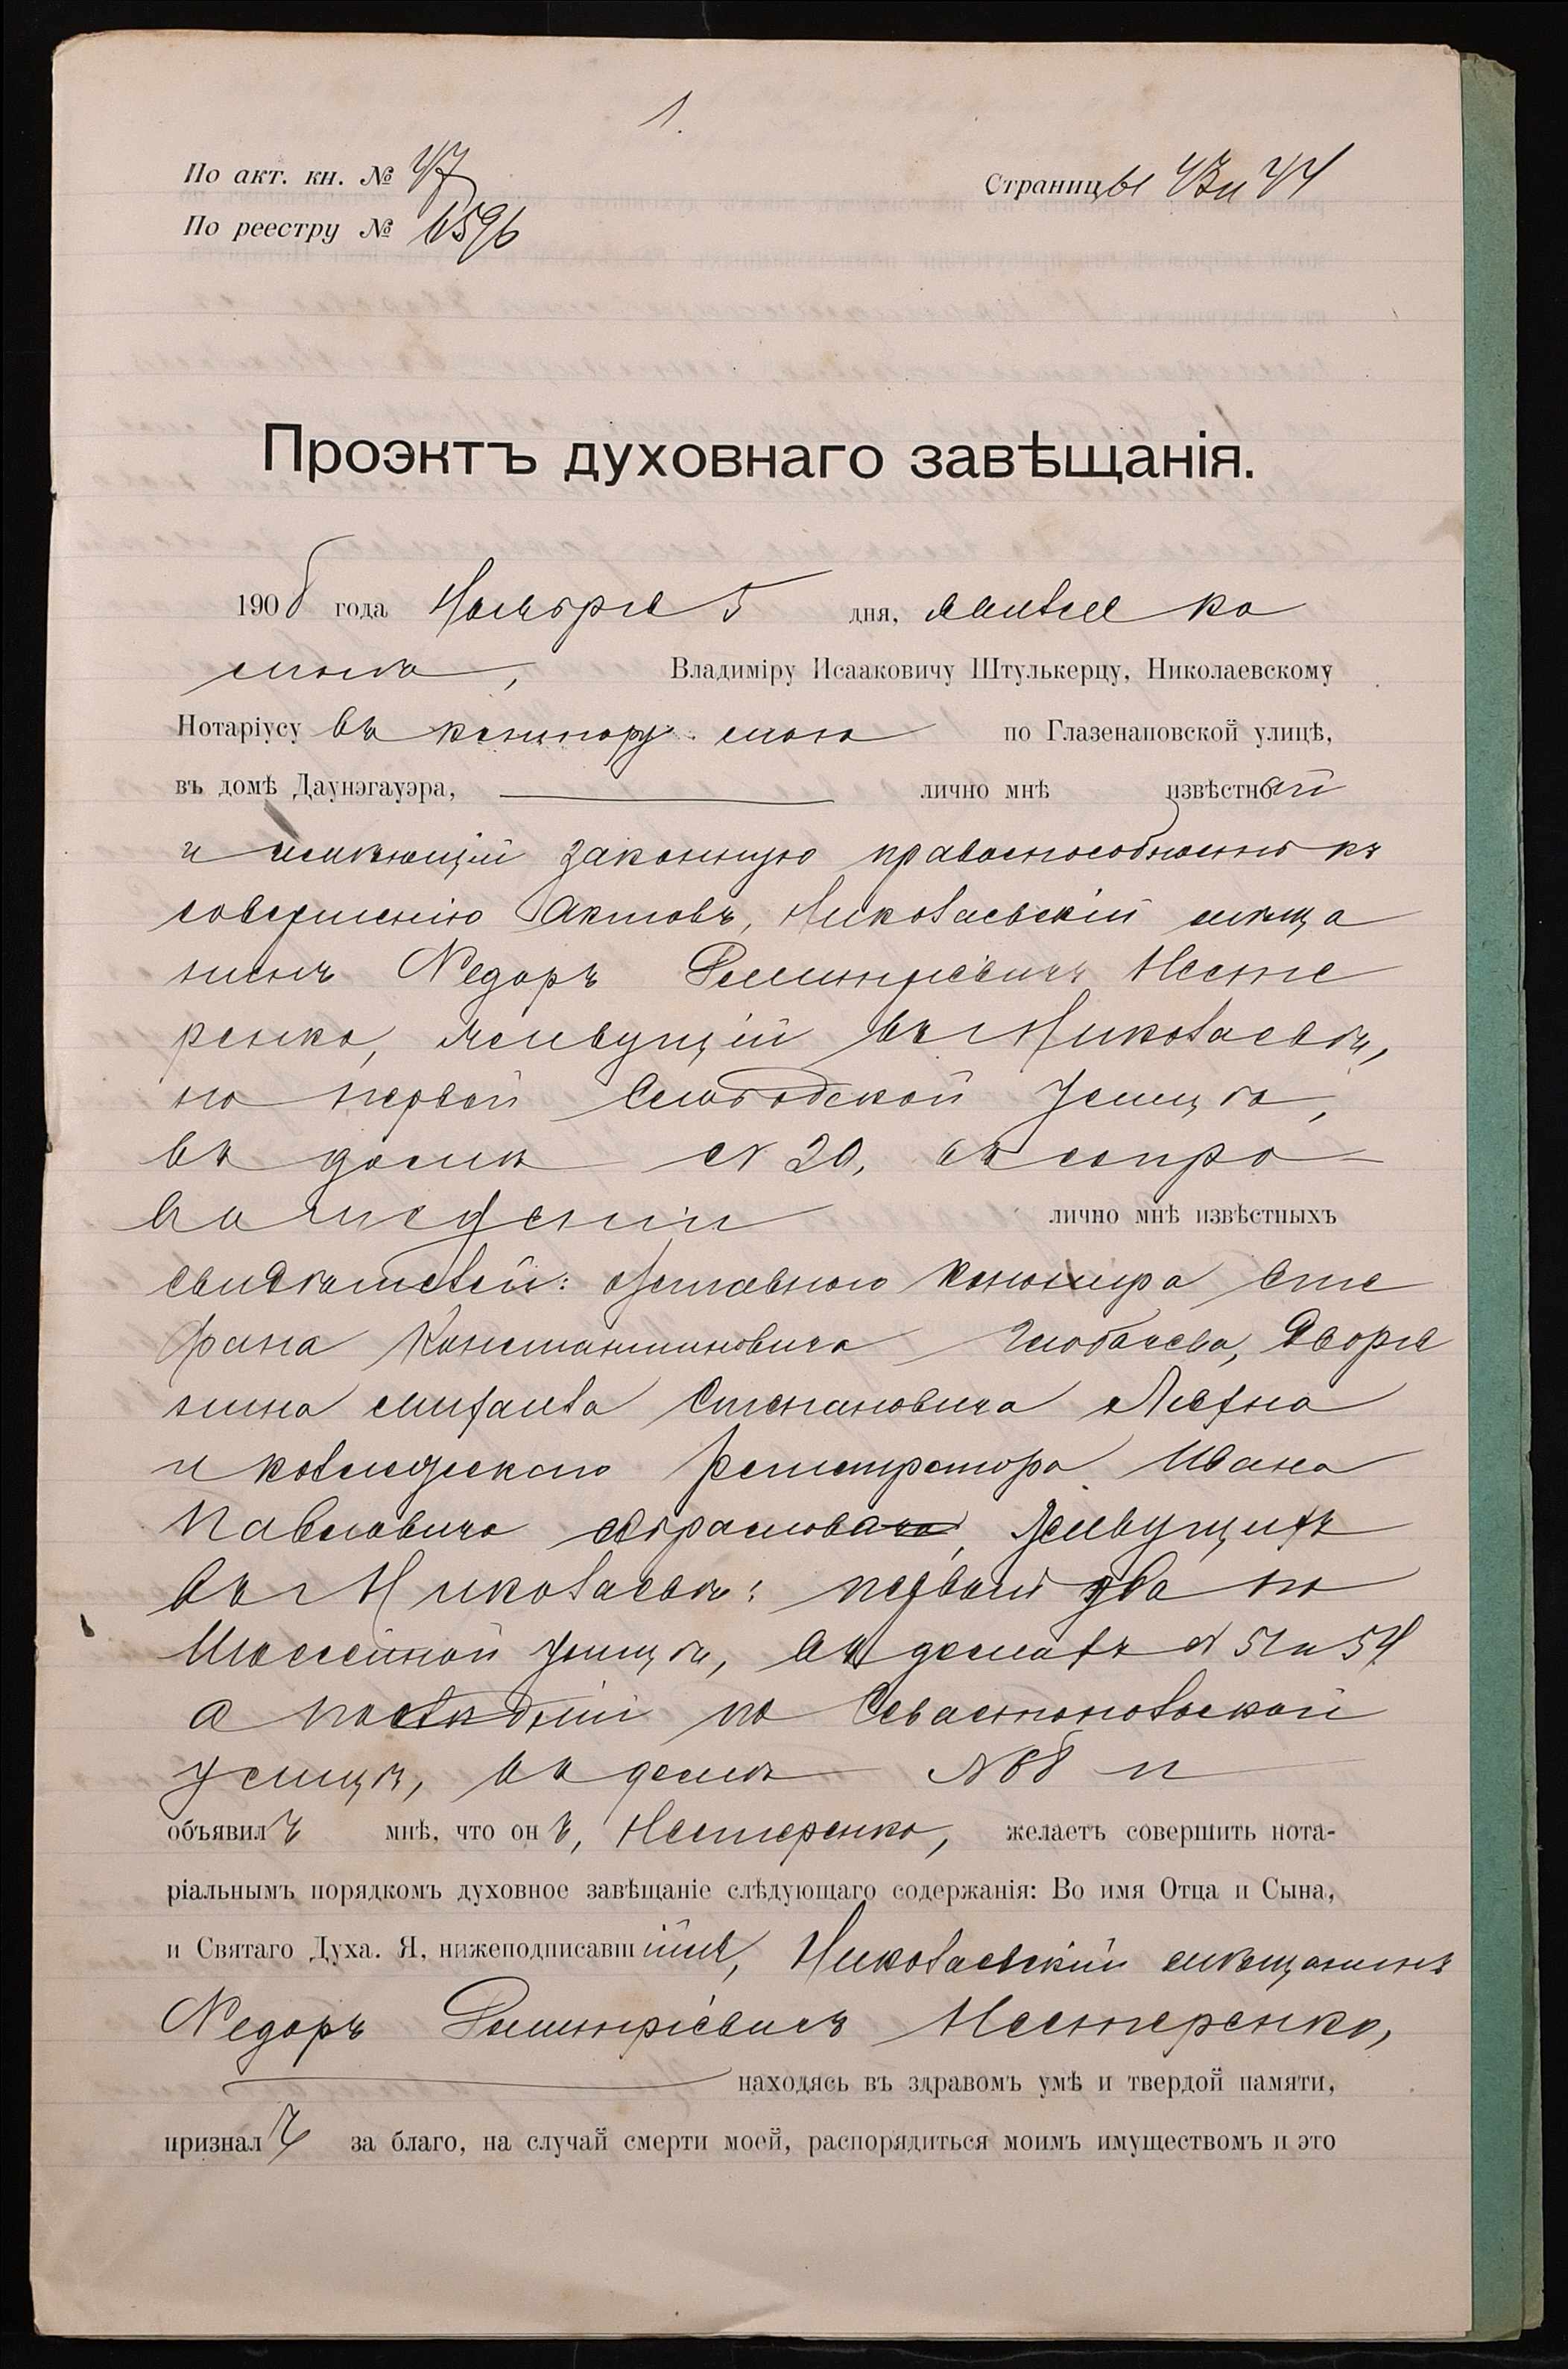 1.
По акт. кн. № 47
Страницы 43 и 44
По реестру № 6596
Проэктъ духовнаго завѣщанія.
190 года Ноября 5 дня, явился ко
мнѣ, Владиміру Исааковичу Штулькерцу, Николаевскому
Нотаріусу въ контору мою по Глазенаповской улицѣ,
въ домѣ Даунэгауэра, лично мнѣ извѣстный
и имѣющій законную правоспособность къ
совершенію актовъ, Николаевскій мѣща
нинъ Ѳедоръ Дмитріевичъ Несте
ренко, живущій въ г. Николаевѣ,
по первой Слободской улицѣ,
въ домѣ № 20, въ сопро-
вожденіи лично мнѣ извѣстныхъ
свидѣтелей: отставного Сте
фана Константиновича Дворя
нина Михаила Степановича
и коллежскаго регистратора Ивана
Павловича живущихъ
въ г. Николаевѣ: первый два по
Шоссейной улицѣ, въ домахъ № 51 и 54
а послѣдній по Севастопольской
улицѣ, въ домѣ № и
объявилъ мнѣ, что онъ, Нестеренко, желаетъ совершить нота-
ріальнымъ порядкомъ духовное завѣщаніе слѣдующаго содержанія: Во имя Отца и Сына,
и Святаго Духа. Я, нижеподписавшійся, Николаевскій мѣщанинъ
Ѳедоръ Дмитріевичъ Нестеренко,
находясь въ здравомъ умѣ и твердой памяти,
призналъ за благо, на случай смерти моей, распорядиться моимъ имуществомъ и это